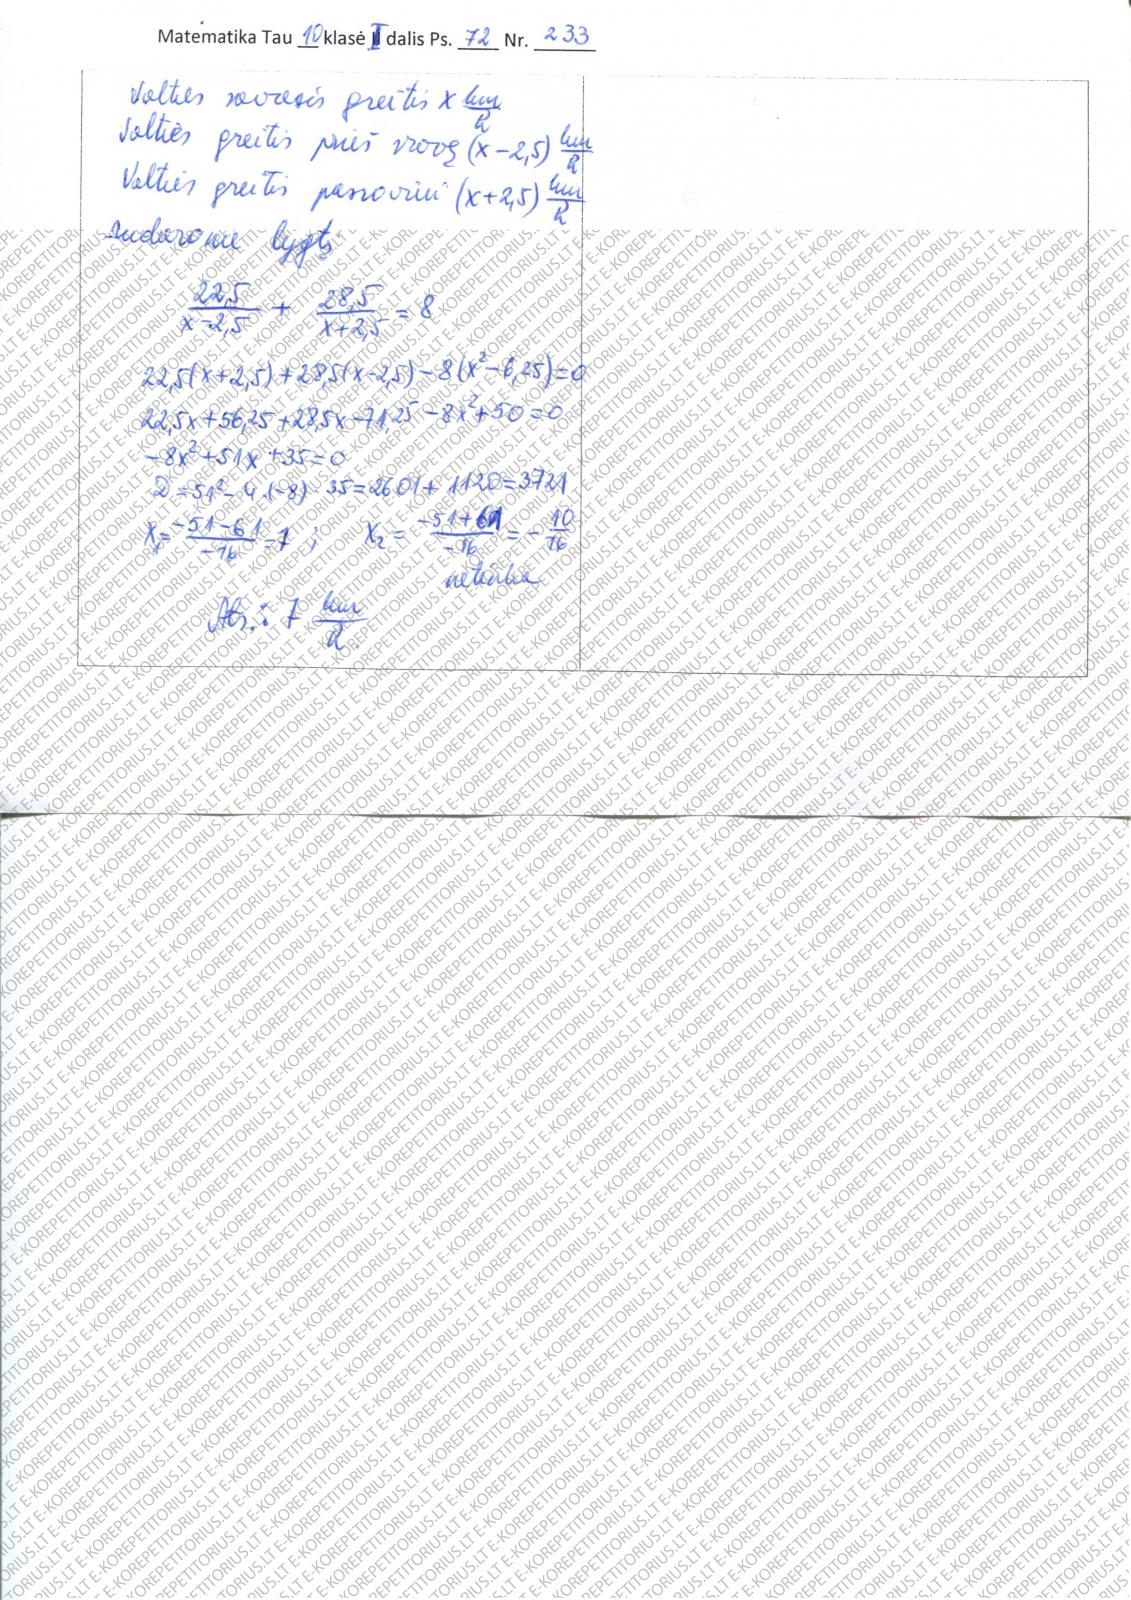 Matematika Tau 10 klasė I dalis Ps. 72 Nr. 233
Valties savasis greitis x km/h
Valties greitis prieš srovę (x-2,5) km/h
Valties greitis pasroviui (x+2,5) km/h
sudarome lygtį:
22,5/(x-2,5) + 28,5/(x+2,5) = 8
22,5(x+2,5)+28,5(x-2,5)-8(x²-6,25)=0
22,5x+56,25+28,5x-71,25-8x²+50=0
-8x²+51x+35=0
D=51²-4·(-8)·35=2601+1120=3721
x₁=(-51-61)/-16=7; x₂=(-51+61)/-16=-10/16
netinka
Ats.: 7 km/h.
E-KOREPETITORIUS.LT